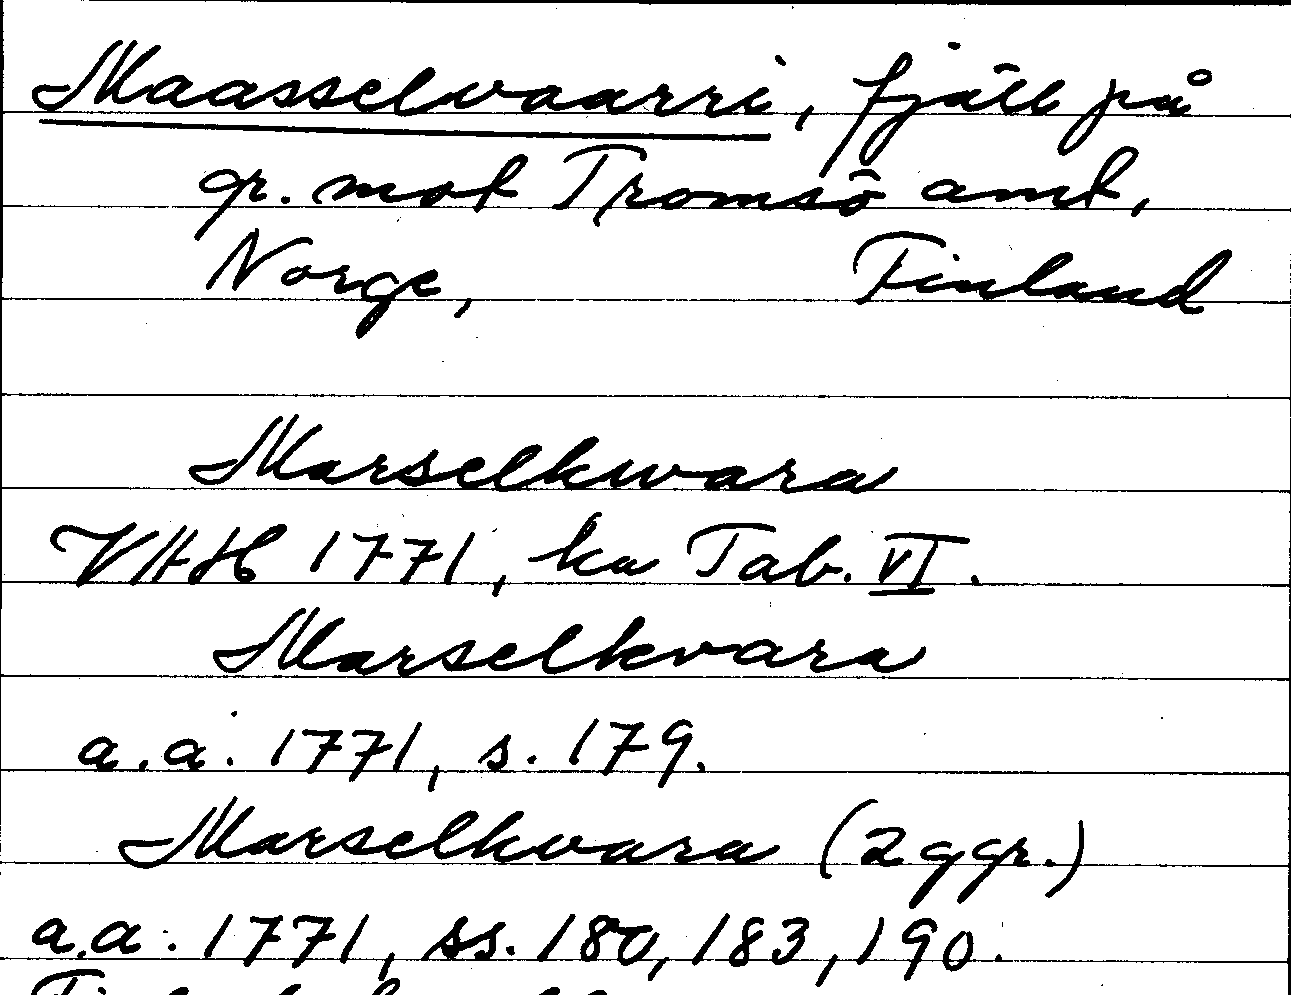 Maasselvaarri, fjäll på
gr. mot Tromsö amt,
Norge, Finland
Marselkwara
VHH 1771, ka Tab. VI.
Marselkvara
a.a. 1771, s. 179.
Marselkvara (2 ggr.)
a.a. 1771, ss. 180, 183, 190.